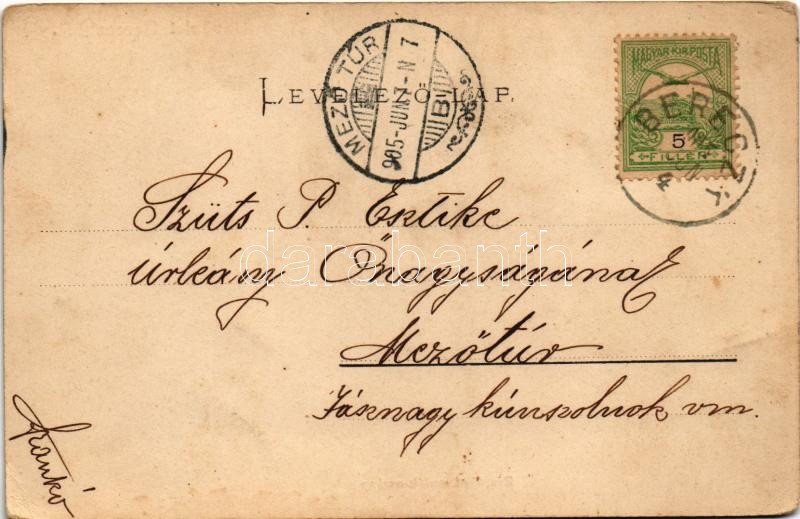 LEVELEZŐ-LAP.
MEZŐ TÚR
905 JUN N 7
B
MAGYAR KIR. POSTA
5
FILLÉR
Szüts P. Esztike
úrleány Őnagyságának
Mezőtúr
Jásznagykúnszolnok vm.
Jankó
darabanth